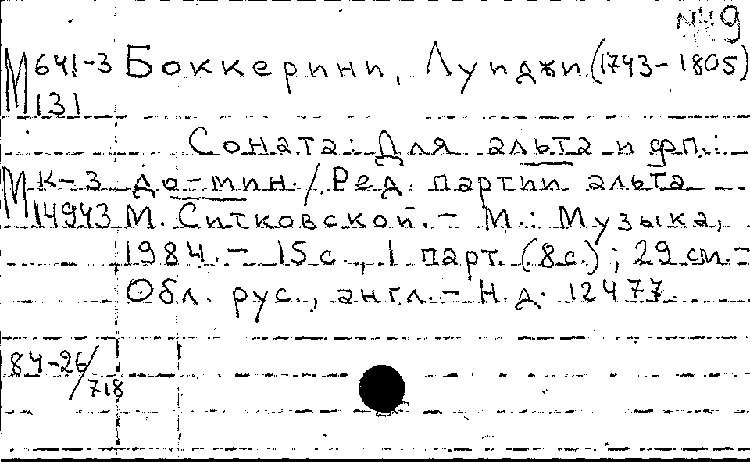 М 641-3 Боккерини, Луиджи (1743-1805)
131
Соната: Для альта и фп.:
М К-3 до-мин. / Ред. партии альта
14943 М. Ситковской. – М.: Музыка,
1984. – 15 с., 1 парт. (8с.); 29 см. –
Обл. рус., англ. – Н.д. 12477
84-26/718